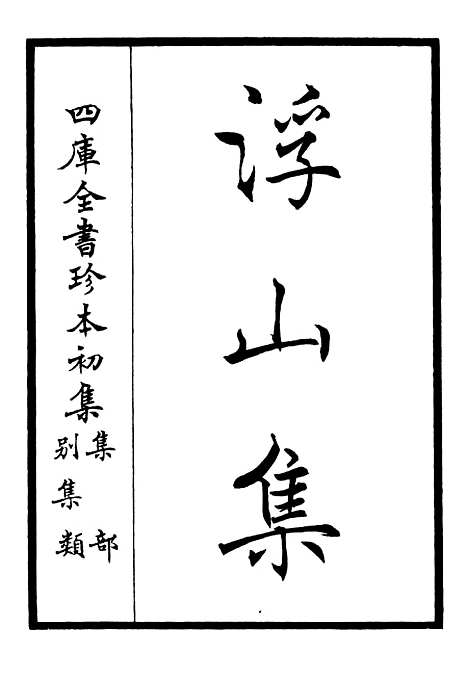 浮山集
四庫全書珍本初集
集部
別集類